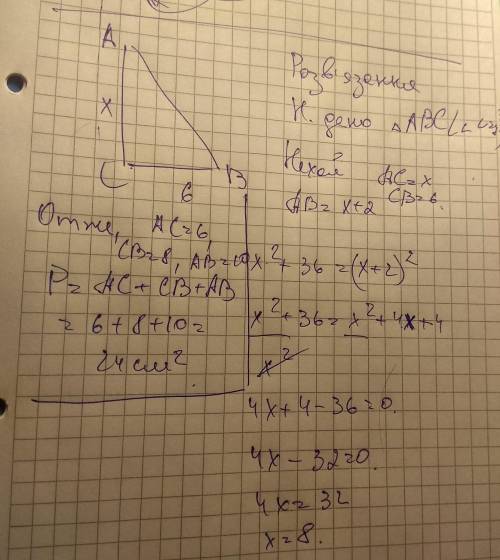 A
x
C
6
B
Розв'язення
Н. дено △ABC(∠
Нехой AC=x
AB=x+2 CB=6.
Отже, AC=6,
CB=8, AB=10
P=AC+CB+AB
=6+8+10=
24см²
x²+36=(x+2)²
x²+36=x²+4x+4
x²
4x+4-36=0.
4x-32=0.
4x=32
x=8.